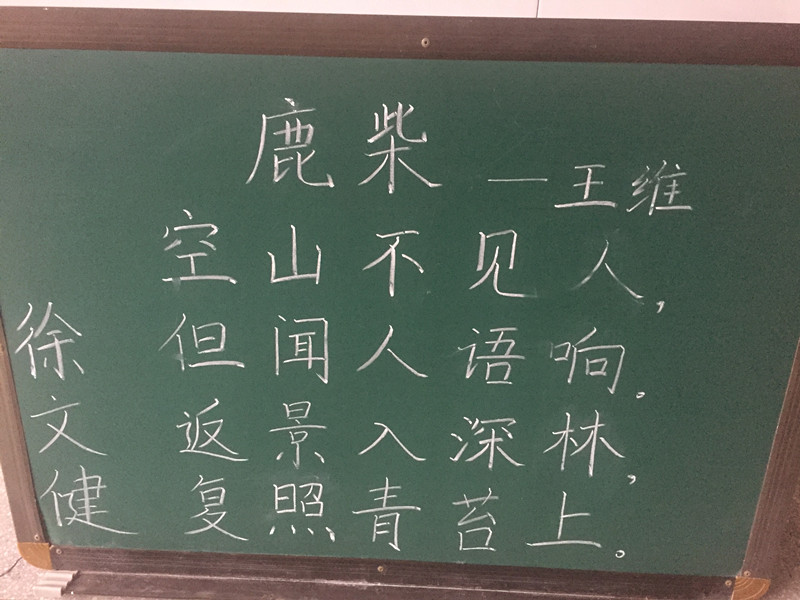 鹿柴
—王维
空山不见人,
但闻人语响.
返景入深林,
复照青苔上。
徐文健